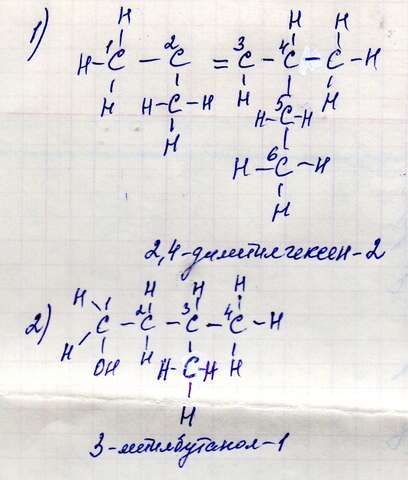 1)
H H H
H-C¹ - C² = C³ - C⁴ - C-H
H H H
H-C-H H-C⁵-H
H H-C⁶-H
H
2,4-диметилгексен-2
2)
H H H H
C¹ - C² - C³ - C⁴ - H
H OH H H-C-H H
H
3-метилбутанол-1